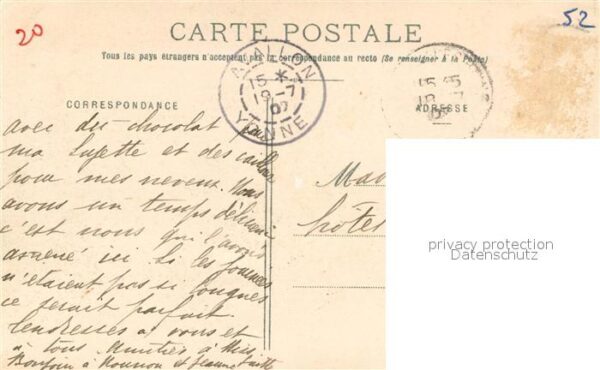 20
52
CARTE POSTALE
Tous les pays étrangers n'acceptent pas la correspondance au recto (Se renseigner à la Poste)
AVALLON
15 *
19 -7
07
YONNE
15
CORRESPONDANCE
ADRESSE
avec du chocolat pour
ma Suzette et des
pour mes neveux. Nous
avons un temps délicieux
c'est nous qui l'avons
amené ici. Si les journées
n'étaient pas si longues
ce serait parfait.
Tendresses à vous et
à tous Amitiés à Miss
Bonjour à et Jeannette
hôtel
privacy protection
Datenschutz